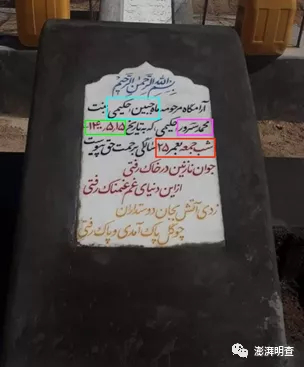 بسم الله الرحمن الرحیم
آرامگاه مرحومه ماه جبین حکیمی بنت
محمد سرور حکیمی که بتاریخ ۱۴۰۰،۵،۱۵
شب جمعه بعمر ۲۵ سالگی برحمت حق پیوست
جوان نازنین در خاک رفتی
ازین دنیای غم غمناک رفتی
زدی آتش بجان دوستداران
چو گل پاک آمدی و پاک رفتی
澎湃明查